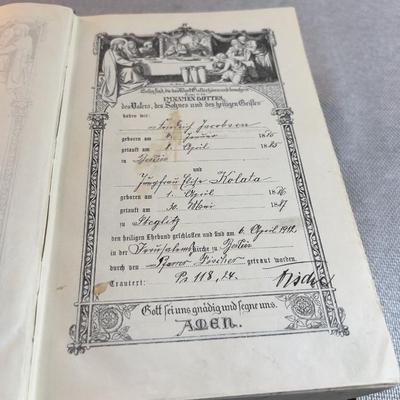 Selig sind, die das Wort Gottes hören und bewahren
IM NAMEN GOTTES
des Vaters, des Sohnes und des heiligen Geistes
haben wir:
Friedrich Jacobsen
geboren am Januar 18
getauft am April 18
in Berlin
und
Jungfrau Elise Kolata
geboren am April 18
getauft am 30. Mai 18
in Steglitz
den heiligen Ehebund geschlossen und sind am 6. April 1912
in der Jerusalemskirche zu Berlin
durch den Pfarrer Fischer getraut worden.
Trautext: Ps 118, 24.
Gott sei uns gnädig und segne uns.
AMEN.